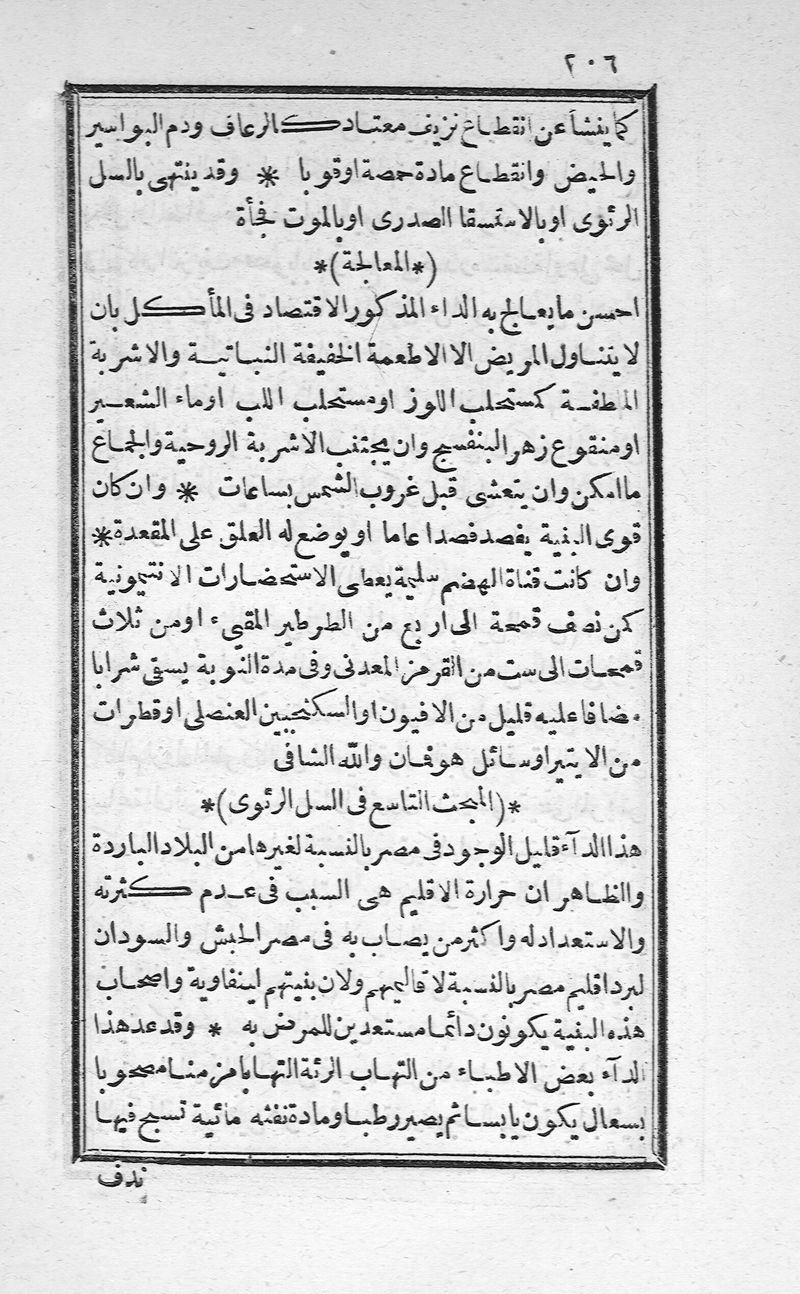 ٢٠٦
كما ينشأ عن انقطاع نزيف معتاد كالرعاف ودم البواسير
والحيض وانقطاع مادة حمصة اوقوبا * وقد ينتهى بالسل
الرئوى اوبالاستسقا الصدرى اوبالموت فجأة
*(المعالجة)*
احسن مايعالج به الداء المذكور الاقتصاد فى المأكل بان
لا يتناول المريض الا الاطعمة الخفيفة النباتية والاشربة
الملطفة كمستحلب اللوز اومستحلب اللب اوماء الشعير
اومنقوع زهر البنفسج وان يجتنب الاشربة الروحية والجماع
ما امكن وان يتعشى قبل غروب الشمس بساعات * وان كان
قوى البنية يفصد فصدا عاما اويوضع له العلق على المقعدة *
وان كانت قناة الهضم سليمة يعطى الاستحضارات الانتيمونية
كمن نصف قمحة الى اربع من الطرطير المقيء اومن ثلاث
قمحات الى ست من القرمز المعدنى وفى مدة النوبة يسقى شرابا
مضافا عليه قليل من الافيون اوالسكنجبين العنصلى اوقطرات
من الايتير اوسائل هوفمان والله الشافى
*(المبحث التاسع فى السل الرئوى)*
هذا الدآء قليل الوجود فى مصر بالنسبة لغيرها من البلاد الباردة
والظاهر ان حرارة الاقليم هى السبب فى عدم كثرته
والاستعداد له واكثر من يصاب به فى مصر الحبش والسودان
لبرد اقليم مصر بالنسبة لاقاليمهم ولان بنيتهم لينفاوية واصحاب
هذه البنية يكونون دائما مستعدين للمرض به * وقد عد هذا
الدآء بعض الاطباء من التهاب الرئة التهابا مزمنا مصحوبا
بسعال يكون يابسا ثم يصير رطبا ومادة نفثه مائية تسبح فيها
ندف